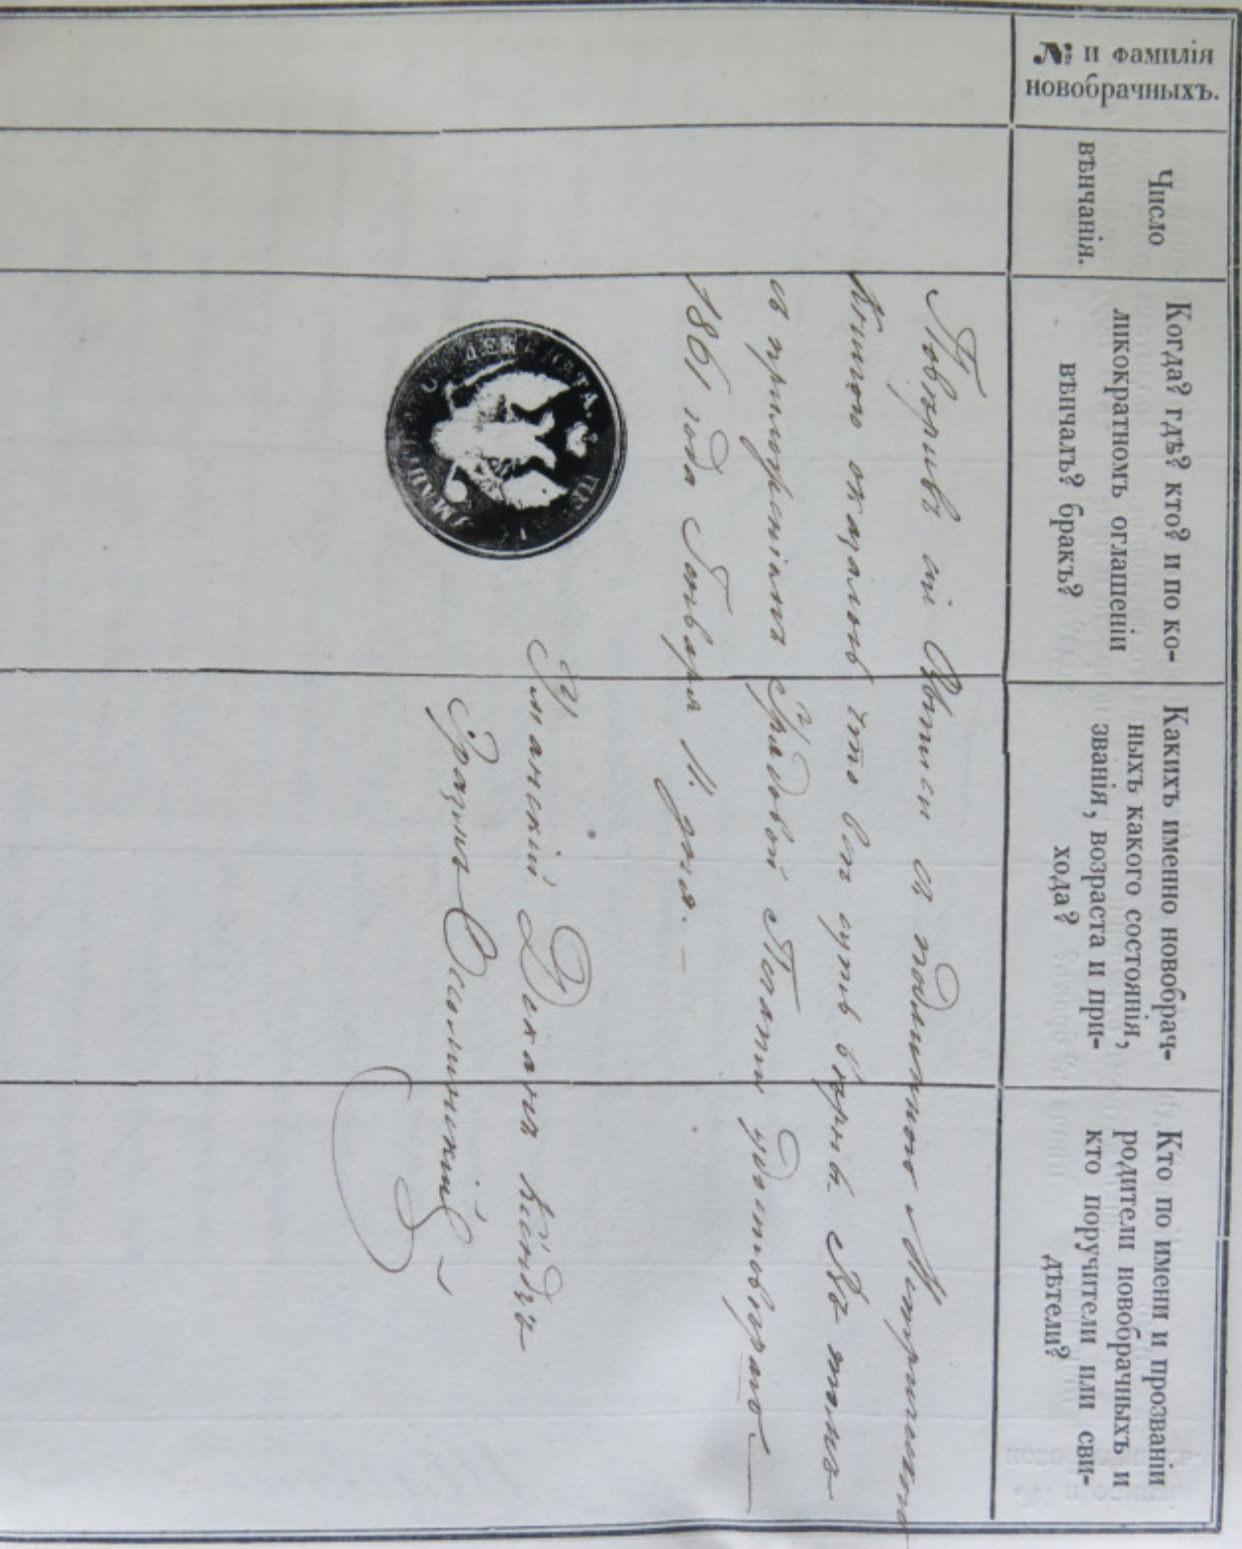 № и фамилія
новобрачныхъ.
Число
вѣнчанія.
Когда? гдѣ? кто? и по ко-
ликократномъ оглашеніи
вѣнчалъ? бракъ?
Какихъ именно новобрач-
ныхъ какого состоянія,
званія, возраста и при-
хода?
Кто по имени и прозваніи
родители новобрачныхъ и
кто поручители или сви-
дѣтели?
Повѣривъ сіи Выписи съ подлинною Метрическою
Книгою оказалось что они суть вѣрны. Въ томъ
съ приложеніемъ Урядовой Печати удостовѣряю
1861 года Января 11. дня.
Уманскій Деканъ Ксендзъ